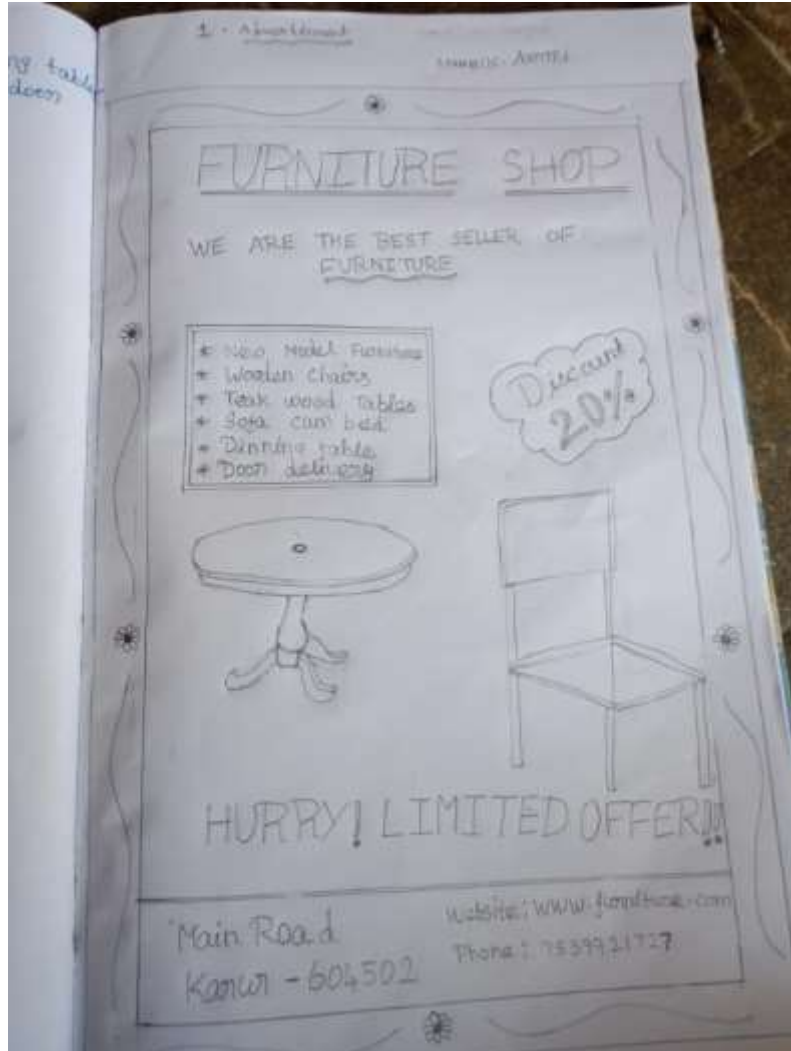 ng table
door
1. Advertisement
FURNITURE SHOP
WE ARE THE BEST SELLER OF
FURNITURE
* New Model Furniture
* Wooden Chairs
* Teak wood Tables
* Sofa cum bed
* Dinning table
* Door delivery
Discount
20%
HURRY! LIMITED OFFER!!
Main Road
Karur - 604502
Website: www.furniture.com
Phone: 7539921727